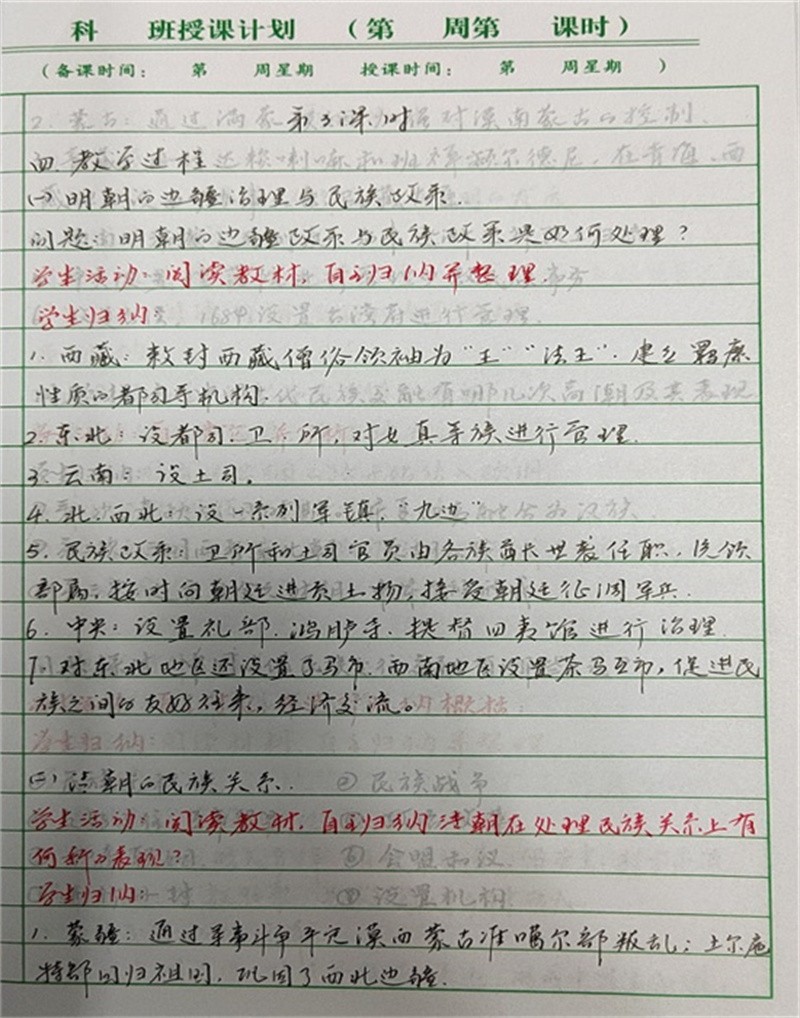 科 班授课计划 （第 周第 课时）
（备课时间： 第 周星期 授课时间： 第 周星期 ）
第3课时
四. 教学过程
(一) 明朝的边疆治理与民族政策.
问题：明朝的边疆政策与民族政策是如何处理？
学生活动：阅读教材，自主归纳并整理.
学生归纳
1. 西藏：敕封西藏僧俗领袖为“王”“法王”. 建立羁縻
性质的都司等机构.
2. 东北：设都司. 卫. 所，对女真等族进行管理.
3. 云南：设土司。
4. 北. 西北：设一系列军镇“九边”
5. 民族政策：卫所和土司官员由各族酋长世袭任职，统领
部属，按时向朝廷进贡土物，接受朝廷征调军兵.
6. 中央：设置礼部. 鸿胪寺. 提督四夷馆进行治理.
7. 对东北地区还设置了马市. 西南地区设置茶马互市，促进民
族之间的友好往来，经济交流。
(二) 清朝的民族关系.
学生活动：阅读教材，自主归纳清朝在处理民族关系上有
何新的表现？
学生归纳：
1. 蒙疆：通过军事斗争平定漠西蒙古准噶尔部叛乱；土尔扈
特部回归祖国，巩固了西北边疆.